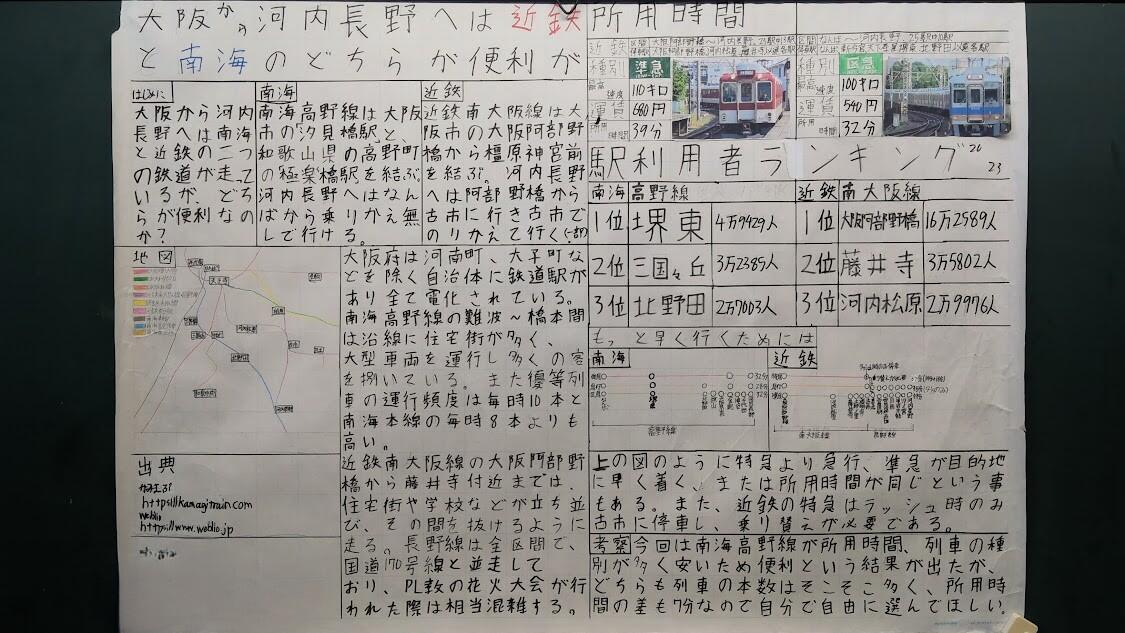 大阪から河内長野へは近鉄
と南海のどちらが便利が
はじめに
大阪から河内
長野へは南海
と近鉄の二つ
の鉄道が走って
いるが、どち
らが便利なの
か?
南海
南海高野線は大阪
市の汐見橋駅と、
和歌山県の高野町
の極楽橋駅を結ぶ
河内長野へはなん
ばから乗りかえ無
しで行ける。
近鉄
近鉄南大阪線は大
阪市の大阪阿部野
橋から橿原神宮前
を結ぶ。河内長野
へは阿部野橋から
古市に行き古市で
のりかえて行く(一部)
地図
大阪府は河南町、太子町な
どを除く自治体に鉄道駅が
あり全て電化されている。
南海高野線の難波~橋本間
は沿線に住宅街が多く、
大型車両を運行し多くの客
を捌いている。また優等列
車の運行頻度は毎時10本と
南海本線の毎時8本よりも
高い。
近鉄南大阪線の大阪阿部野
橋から藤井寺付近までは、
住宅街や学校などが立ち並
び、その間を抜けるように
走る。長野線は全区間で、
国道170号線と並走して
おり、PL教の花火大会が行
われた際は相当混雑する。
出典
https://kamagitrain.com
weblio
https://www.weblio.jp
所用時間
近鉄
種別
準急
最高速度
110キロ
運賃
680円
所用時間
39分
種別
区急
最高速度
100キロ
運賃
540円
所用時間
32分
駅利用者ランキング
2023
南海高野線
1位 堺東 4万9429人
2位 三国ヶ丘 3万2385人
3位 北野田 2万7003人
近鉄南大阪線
1位 大阪阿部野橋 16万2589人
2位 藤井寺 3万5802人
3位 河内松原 2万9976人
もっと早く行くためには
南海
近鉄
上の図のように特急より急行、準急が目的地
に早く着く、または所用時間が同じという事
もある。また、近鉄の特急はラッシュ時のみ
古市に停車し、乗り替えが必要である。
考察今回は南海高野線が所用時間、列車の種
別が多く安いため便利という結果が出たが、
どちらも列車の本数はそこそこ多く、所用時
間の差も7分なので自分で自由に選んでほしい。